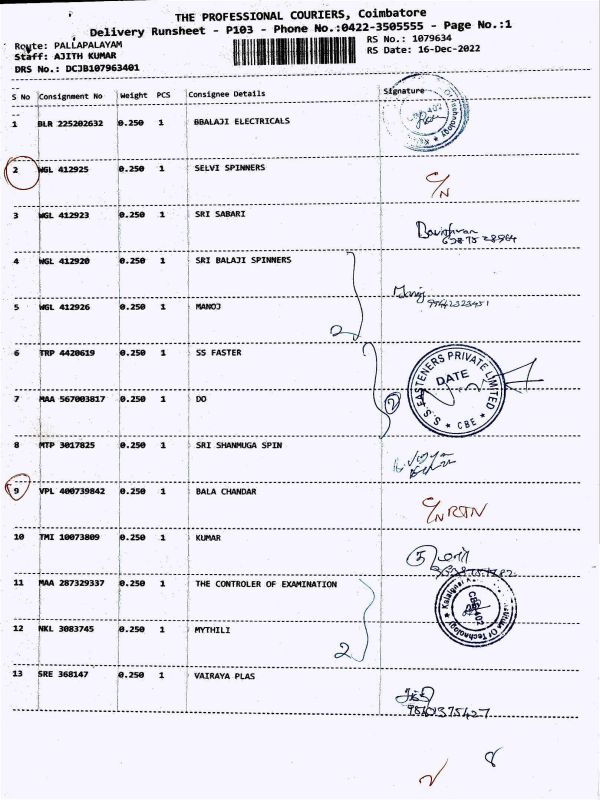 THE PROFESSIONAL COURIERS, Coimbatore
Delivery Runsheet - P103 - Phone No.:0422-3505555 - Page No.:1
Route: PALLAPALAYAM
RS No.: 1079634
Staff: AJITH KUMAR
RS Date: 16-Dec-2022
DRS No.: DCJB107963401
S No Consignment No Weight PCS Consignee Details Signature
1 BLR 225202632 0.250 1 BBALAJI ELECTRICALS
2 WGL 412925 0.250 1 SELVI SPINNERS C/N
3 WGL 412923 0.250 1 SRI SABARI
4 WGL 412920 0.250 1 SRI BALAJI SPINNERS
5 WGL 412926 0.250 1 MANOJ Manoj
2
6 TRP 4420619 0.250 1 SS FASTER
S.S. FASTENERS PRIVATE LIMITED
DATE
CBE
7 MAA 567003817 0.250 1 DO
2
8 MTP 3017825 0.250 1 SRI SHANMUGA SPIN
9 VPL 400739842 0.250 1 BALA CHANDAR C/N RSTN
10 TMI 10073809 0.250 1 KUMAR
5
11 MAA 287329337 0.250 1 THE CONTROLER OF EXAMINATION
12 NKL 3083745 0.250 1 MYTHILI
2
13 SRE 368147 0.250 1 VAIRAYA PLAS
8
2